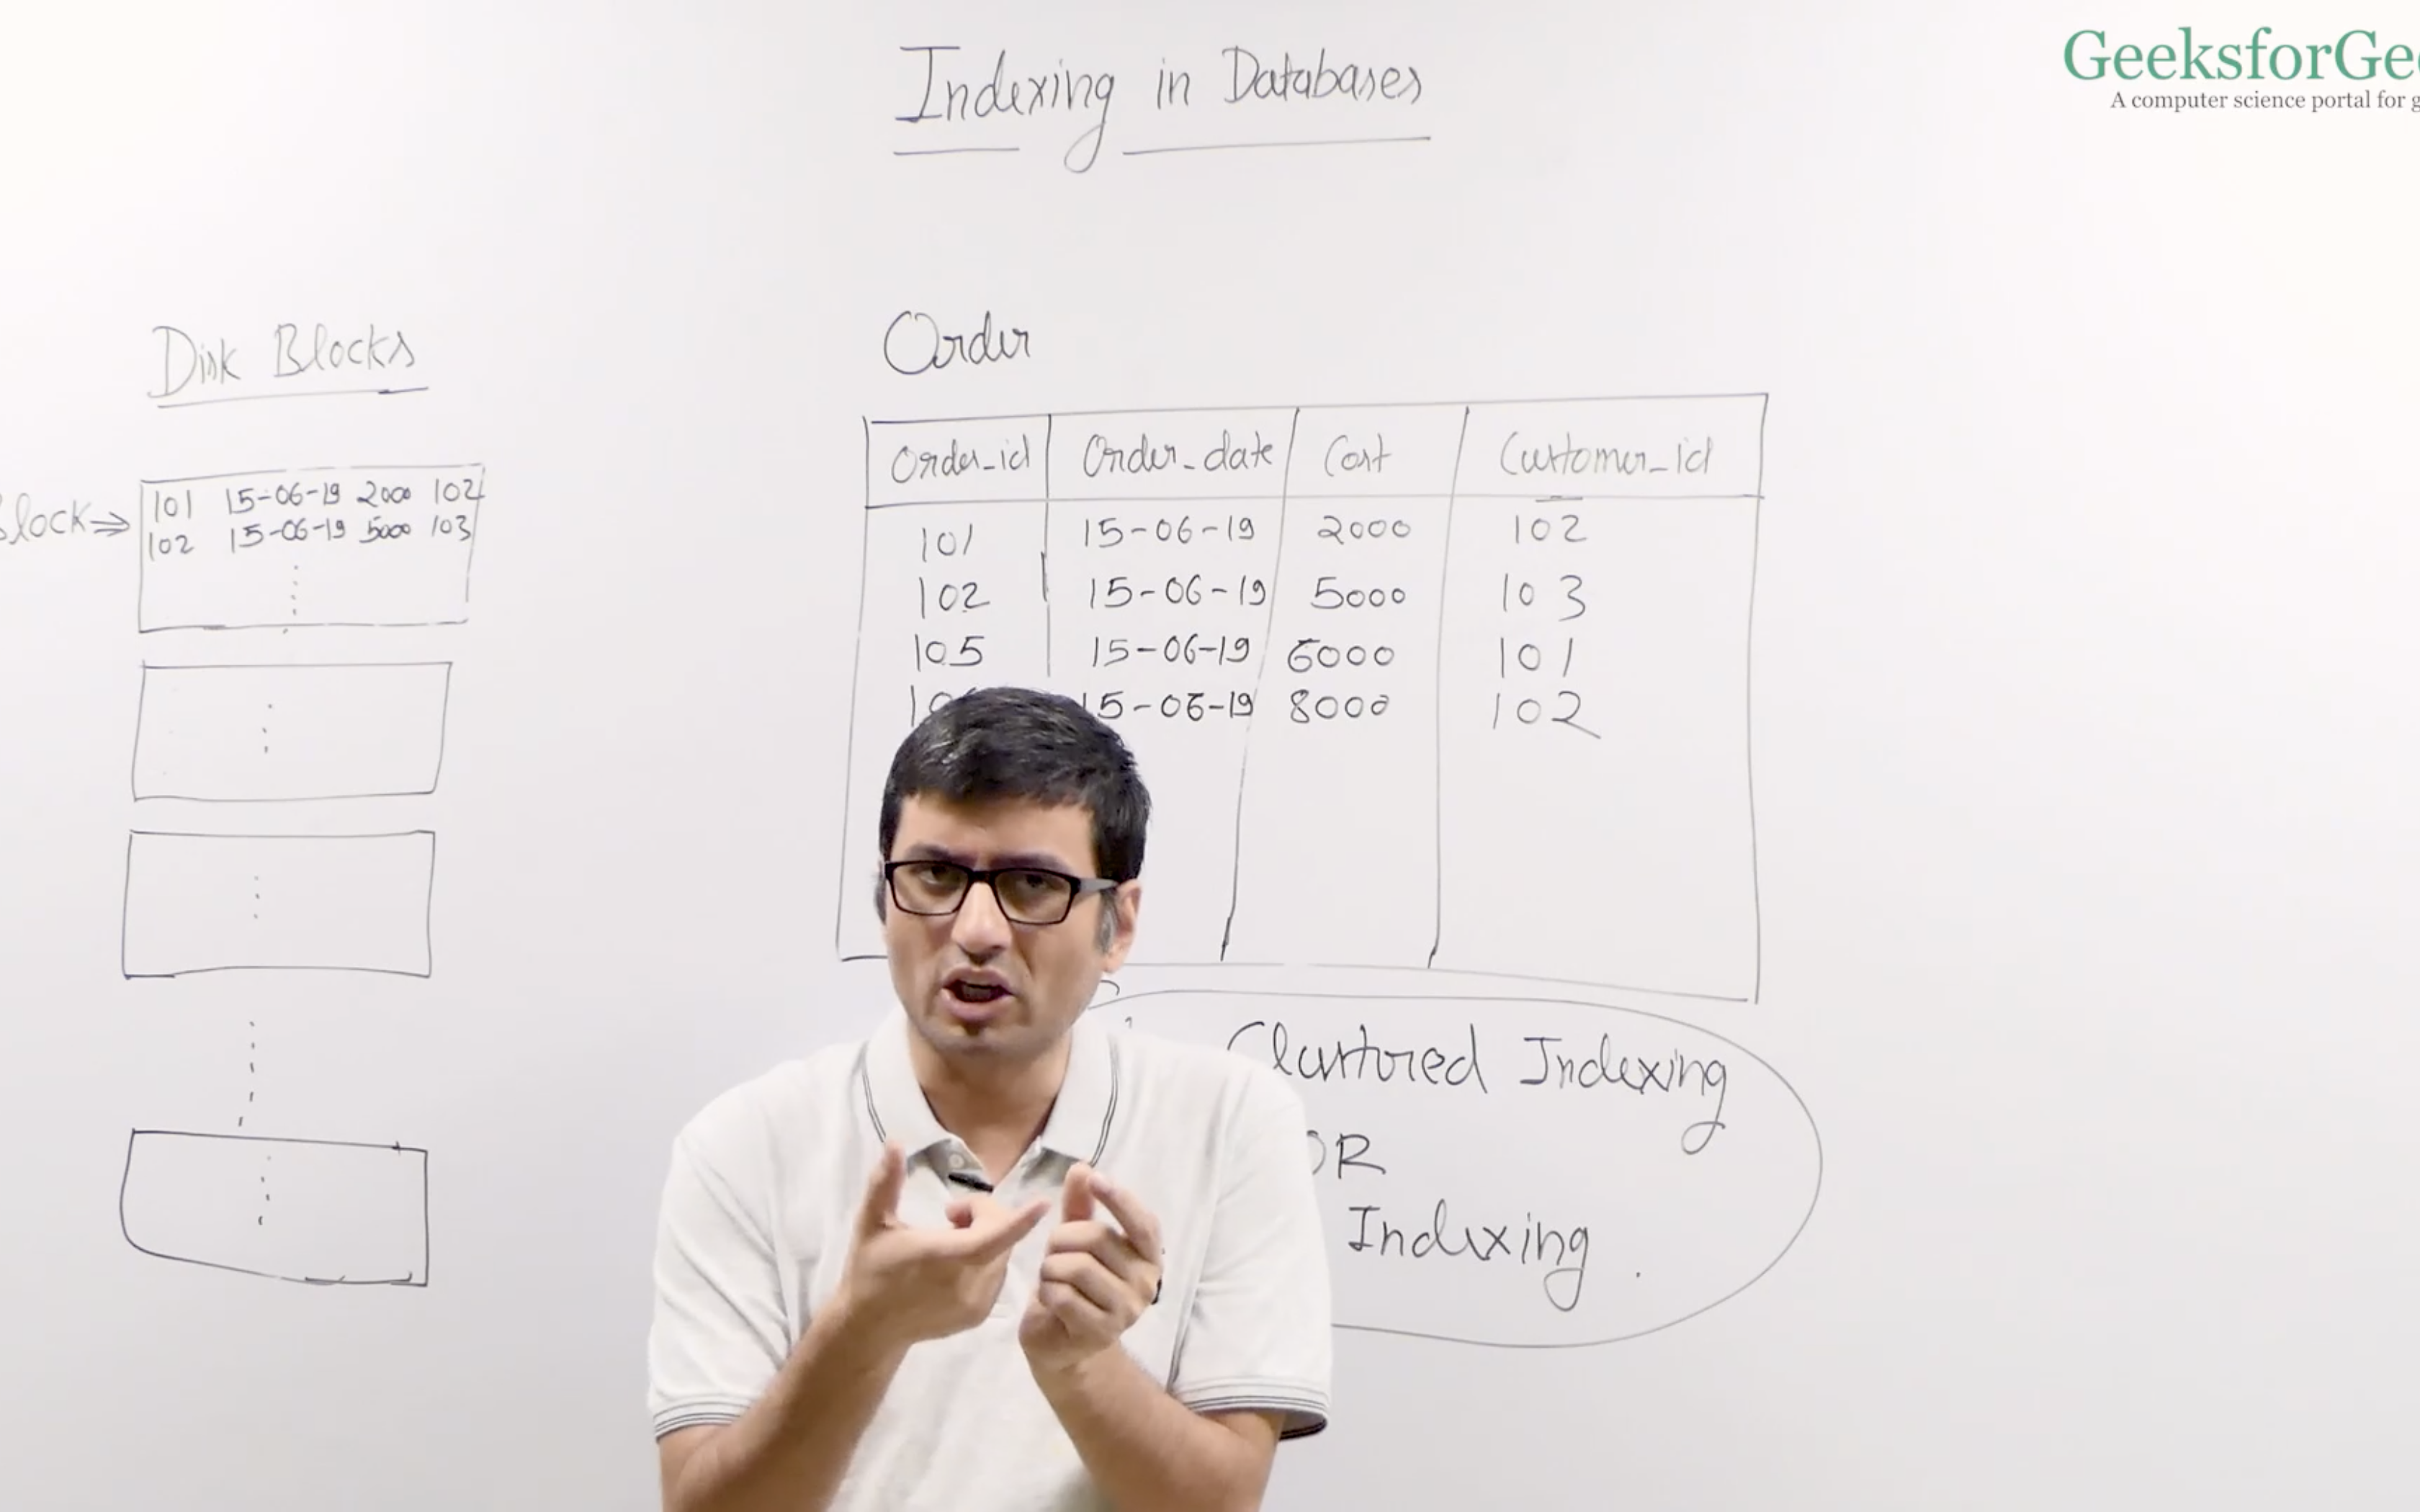 Indexing in Databases
GeeksforGe
A computer science portal for g
Disk Blocks
Block⇒
101 15-06-19 2000 102
102 15-06-19 5000 103
Order
Order_id Order_date Cost Customer_id
101 15-06-19 2000 102
102 15-06-19 5000 103
105 15-06-19 6000 101
15-06-19 8000 102
Clustured Indexing
OR
Indexing.